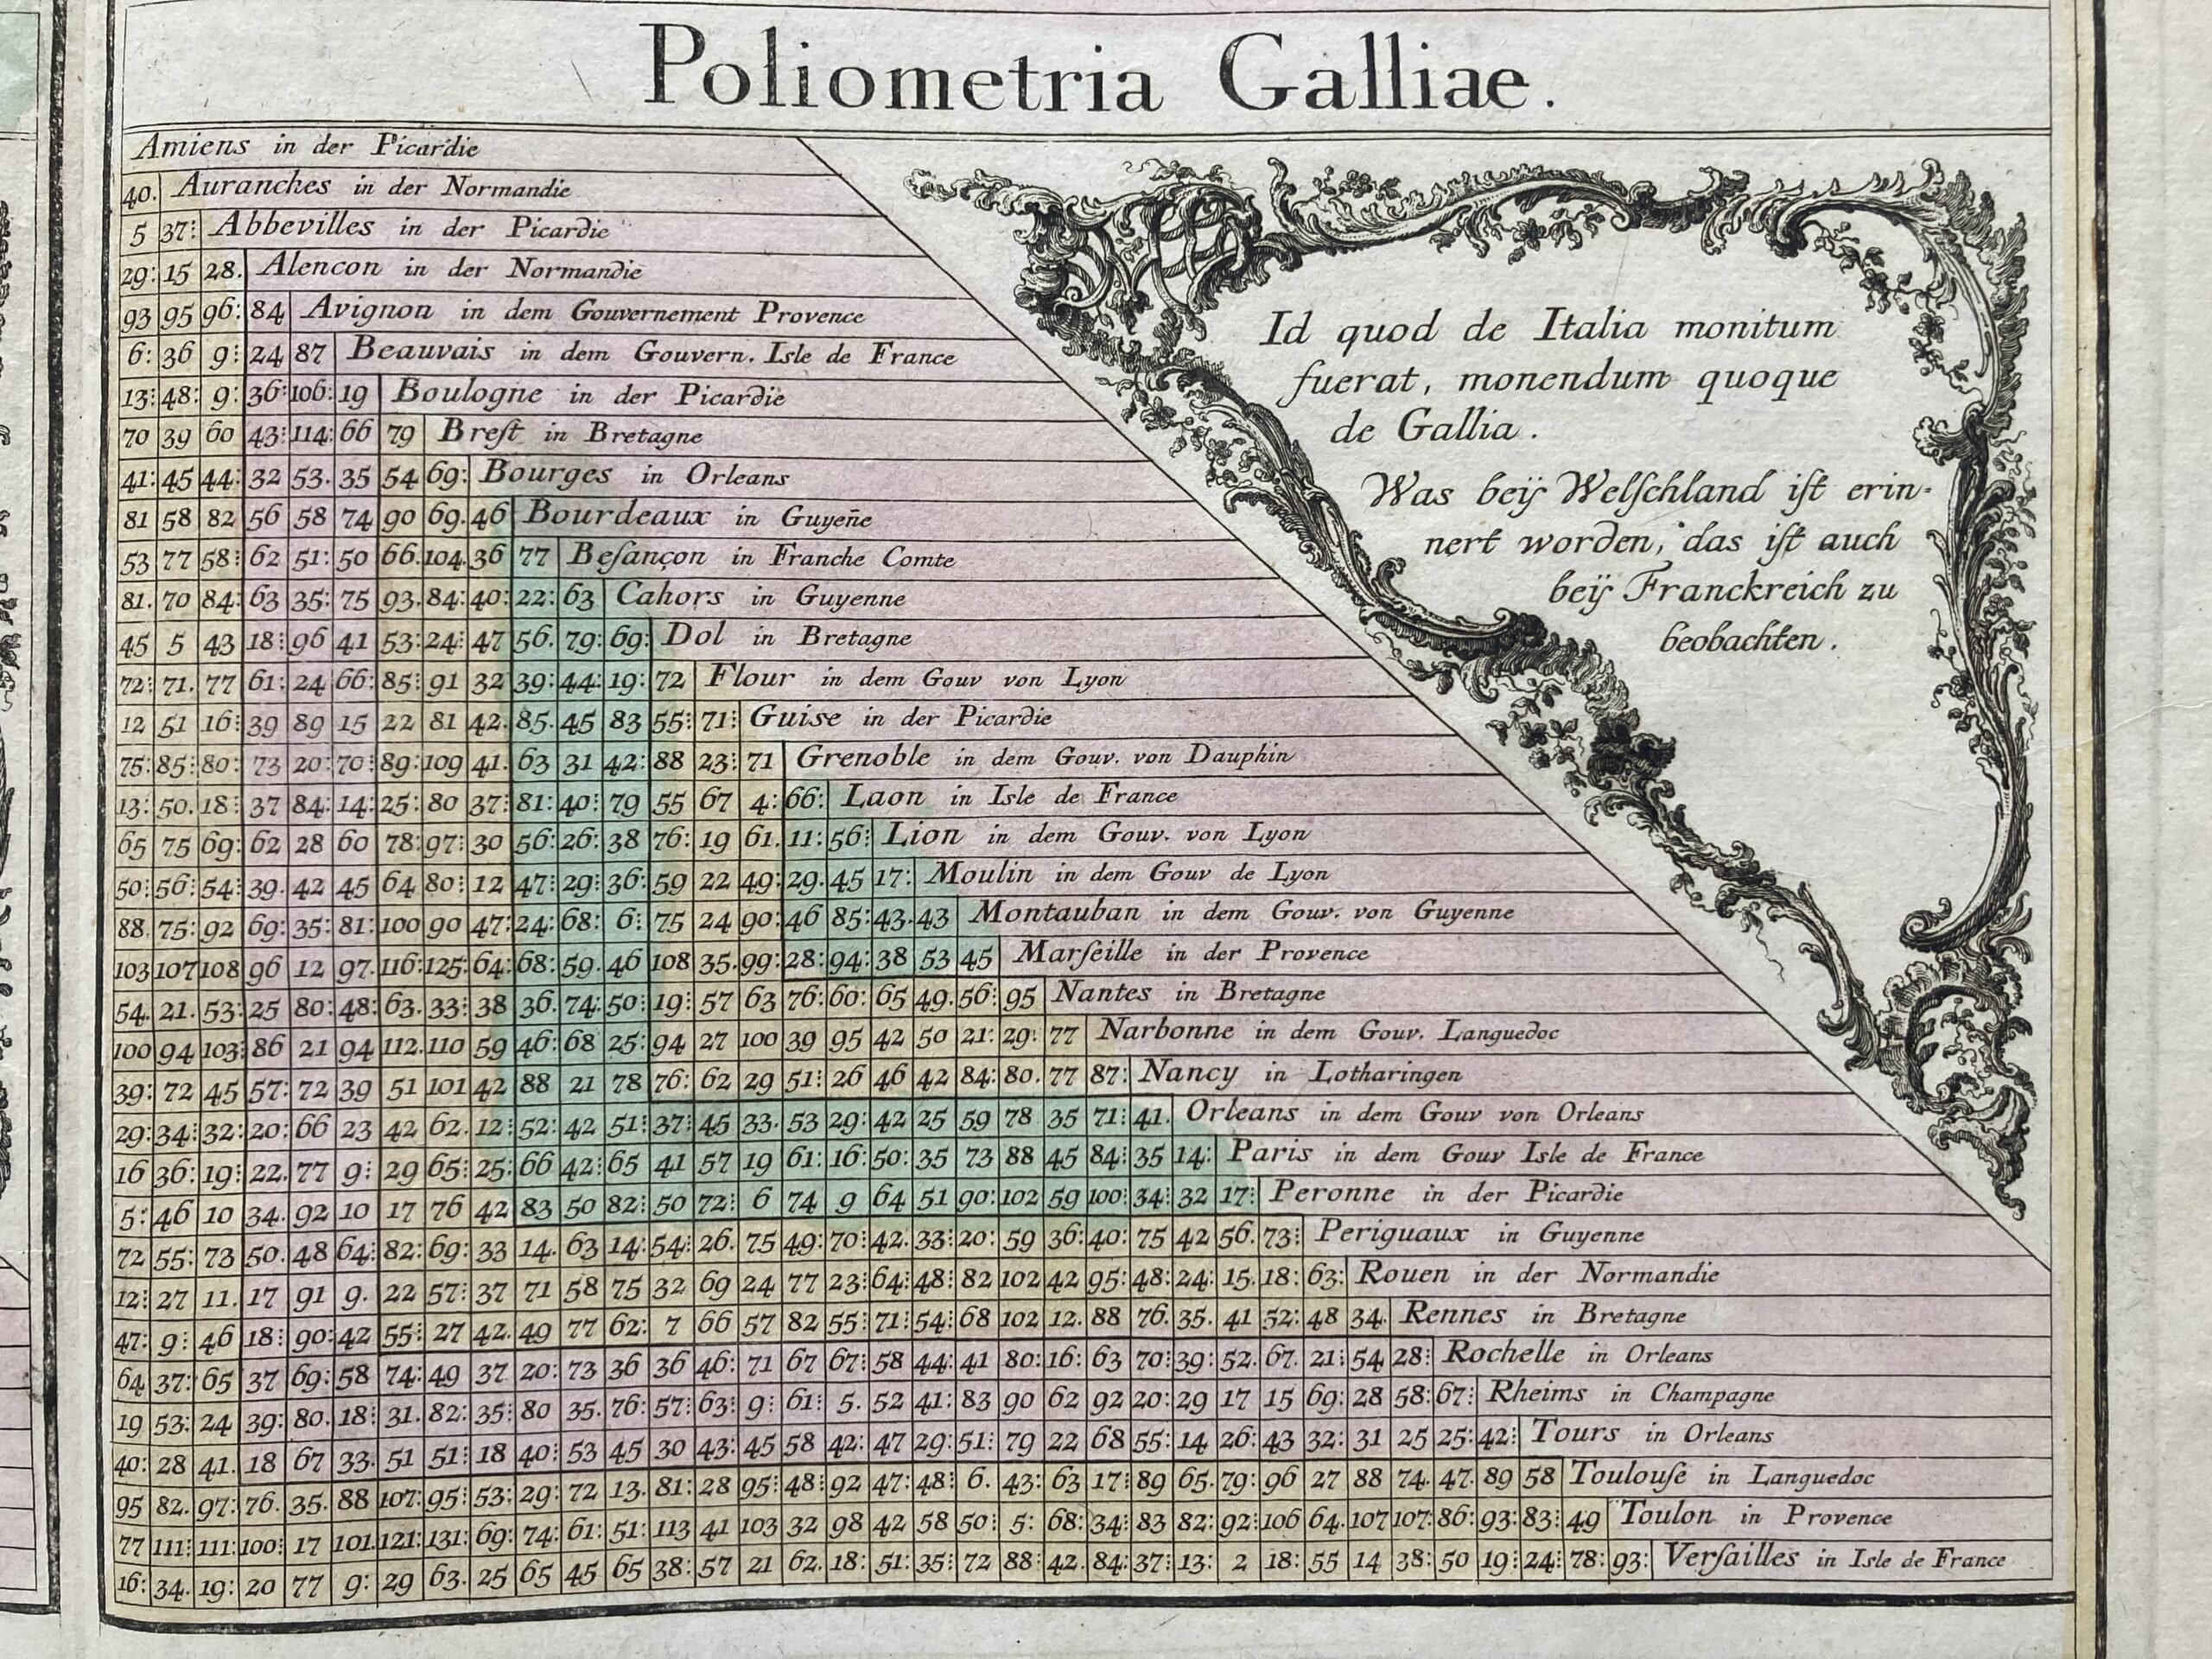 Poliometria Galliae.
Amiens in der Picardie
40. Auranches in der Normandie
5 37: Abbevilles in der Picardie
29: 15 28. Alencon in der Normandie
93 95 96: 84 Avignon in dem Gouvernement Provence
6: 36 9: 24 87 Beauvais in dem Gouvern. Isle de France
13: 48: 9: 36: 106: 19 Boulogne in der Picardie
70 39 60 43: 114: 66 79 Breſt in Bretagne
41: 45 44: 32 53. 35 54 69: Bourges in Orleans
81 58 82 56 58 74 90 69. 46 Bourdeaux in Guyen̄e
53 77 58: 62 51: 50 66. 104. 36 77 Beſançon in Franche Comte
81. 70 84: 63 35: 75 93. 84: 40: 22: 63 Cahors in Guyenne
45 5 43 18: 96 41 53: 24: 47 56. 79: 69: Dol in Bretagne
72: 71. 77 61: 24 66: 85: 91 32 39: 44: 19: 72 Flour in dem Gouv von Lyon
12 51 16: 39 89 15 22 81 42. 85. 45 83 55: 71: Guise in der Picardie
75: 85: 80: 73 20: 70: 89: 109 41. 63 31 42: 88 23: 71 Grenoble in dem Gouv. von Dauphin
13: 50. 18: 37 84: 14: 25: 80 37: 81: 40: 79 55 67 4: 66: Laon in Isle de France
65 75 69: 62 28 60 78: 97: 30 56: 26: 38 76: 19 61. 11: 56: Lion in dem Gouv. von Lyon
50: 56: 54: 39. 42 45 64 80: 12 47: 29: 36: 59 22 49: 29. 45 17: Moulin in dem Gouv de Lyon
88. 75: 92 69: 35: 81: 100 90 47: 24: 68: 6: 75 24 90: 46 85: 43. 43 Montauban in dem Gouv. von Guyenne
103 107 108 96 12 97. 116: 125: 64: 68: 59. 46 108 35. 99: 28: 94: 38 53 45 Marſeille in der Provence
54. 21. 53: 25 80: 48: 63. 33: 38 36. 74: 50: 19: 57 63 76: 60: 65 49. 56: 95 Nantes in Bretagne
100 94 103: 86 21 94 112. 110 59 46: 68 25: 94 27 100 39 95 42 50 21: 29: 77 Narbonne in dem Gouv. Languedoc
39: 72 45 57: 72 39 51 101 42 88 21 78 76: 62 29 51: 26 46 42 84: 80. 77 87: Nancy in Lotharingen
29: 34: 32: 20: 66 23 42 62. 12: 52: 42 51: 37: 45 33. 53 29: 42 25 59 78 35 71: 41. Orleans in dem Gouv von Orleans
16 36: 19: 22. 77 9: 29 65: 25: 66 42: 65 41 57 19 61: 16: 50: 35 73 88 45 84: 35 14: Paris in dem Gouv Isle de France
5: 46 10 34. 92 10 17 76 42 83 50 82: 50 72: 6 74 9 64 51 90: 102 59 100: 34: 32 17: Peronne in der Picardie
72 55: 73 50. 48 64: 82: 69: 33 14. 63 14: 54: 26. 75 49: 70: 42. 33: 20: 59 36: 40: 75 42 56. 73: Periguaux in Guyenne
12: 27 11. 17 91 9. 22 57: 37 71 58 75 32 69 24 77 23: 64: 48: 82 102 42 95: 48: 24: 15. 18: 63: Rouen in der Normandie
47: 9: 46 18: 90: 42 55: 27 42. 49 77 62: 7 66 57 82 55: 71: 54: 68 102 12. 88 76. 35. 41 52: 48 34. Rennes in Bretagne
64 37: 65 37 69: 58 74: 49 37 20: 73 36 36 46: 71 67 67: 58 44: 41 80: 16: 63 70: 39: 52. 67. 21: 54 28: Rochelle in Orleans
19 53: 24 39: 80. 18: 31. 82: 35: 80 35. 76: 57: 63: 9: 61: 5. 52 41: 83 90 62 92 20: 29 17 15 69: 28 58: 67: Rheims in Champagne
40: 28 41. 18 67 33. 51 51: 18 40: 53 45 30 43: 45 58 42: 47 29: 51: 79 22 68 55: 14 26: 43 32: 31 25 25: 42: Tours in Orleans
95 82. 97: 76. 35. 88 107: 95: 53: 29: 72 13. 81: 28 95: 48: 92 47: 48: 6. 43: 63 17: 89 65. 79: 96 27 88 74. 47. 89 58 Toulouſe in Languedoc
77 111: 111: 100: 17 101. 121: 131: 69: 74: 61: 51: 113 41 103 32 98 42 58 50: 5: 68: 34: 83 82: 92: 106 64. 107 107: 86: 93: 83: 49 Toulon in Provence
16: 34. 19: 20 77 9: 29 63. 25 65 45 65 38: 57 21 62. 18: 51: 35: 72 88: 42. 84: 37: 13: 2 18: 55 14 38: 50 19: 24: 78: 93: Verſailles in Isle de France
Id quod de Italia monitum
fuerat, monendum quoque
de Gallia.
Was beÿ Welſchland iſt erin-
nert worden, das iſt auch
beÿ Franckreich zu
beobachten.